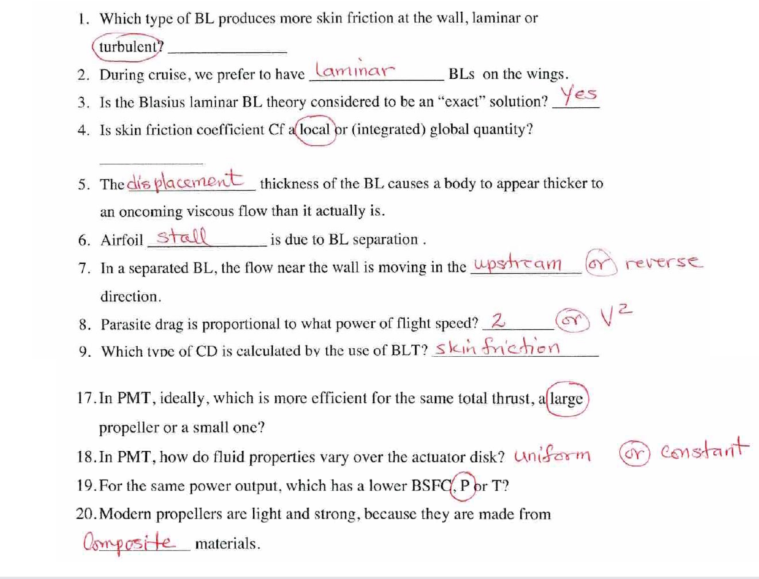 1. Which type of BL produces more skin friction at the wall, laminar or
turbulent? ____________
2. During cruise, we prefer to have laminar BLs on the wings.
3. Is the Blasius laminar BL theory considered to be an “exact” solution? Yes
4. Is skin friction coefficient Cf a local or (integrated) global quantity?
____________
5. The displacement thickness of the BL causes a body to appear thicker to
an oncoming viscous flow than it actually is.
6. Airfoil stall is due to BL separation .
7. In a separated BL, the flow near the wall is moving in the upstream or reverse
direction.
8. Parasite drag is proportional to what power of flight speed? 2 or V²
9. Which type of CD is calculated by the use of BLT? skin friction
17. In PMT, ideally, which is more efficient for the same total thrust, a large
propeller or a small one?
18. In PMT, how do fluid properties vary over the actuator disk? uniform or constant
19. For the same power output, which has a lower BSFC, P or T?
20. Modern propellers are light and strong, because they are made from
Composite materials.